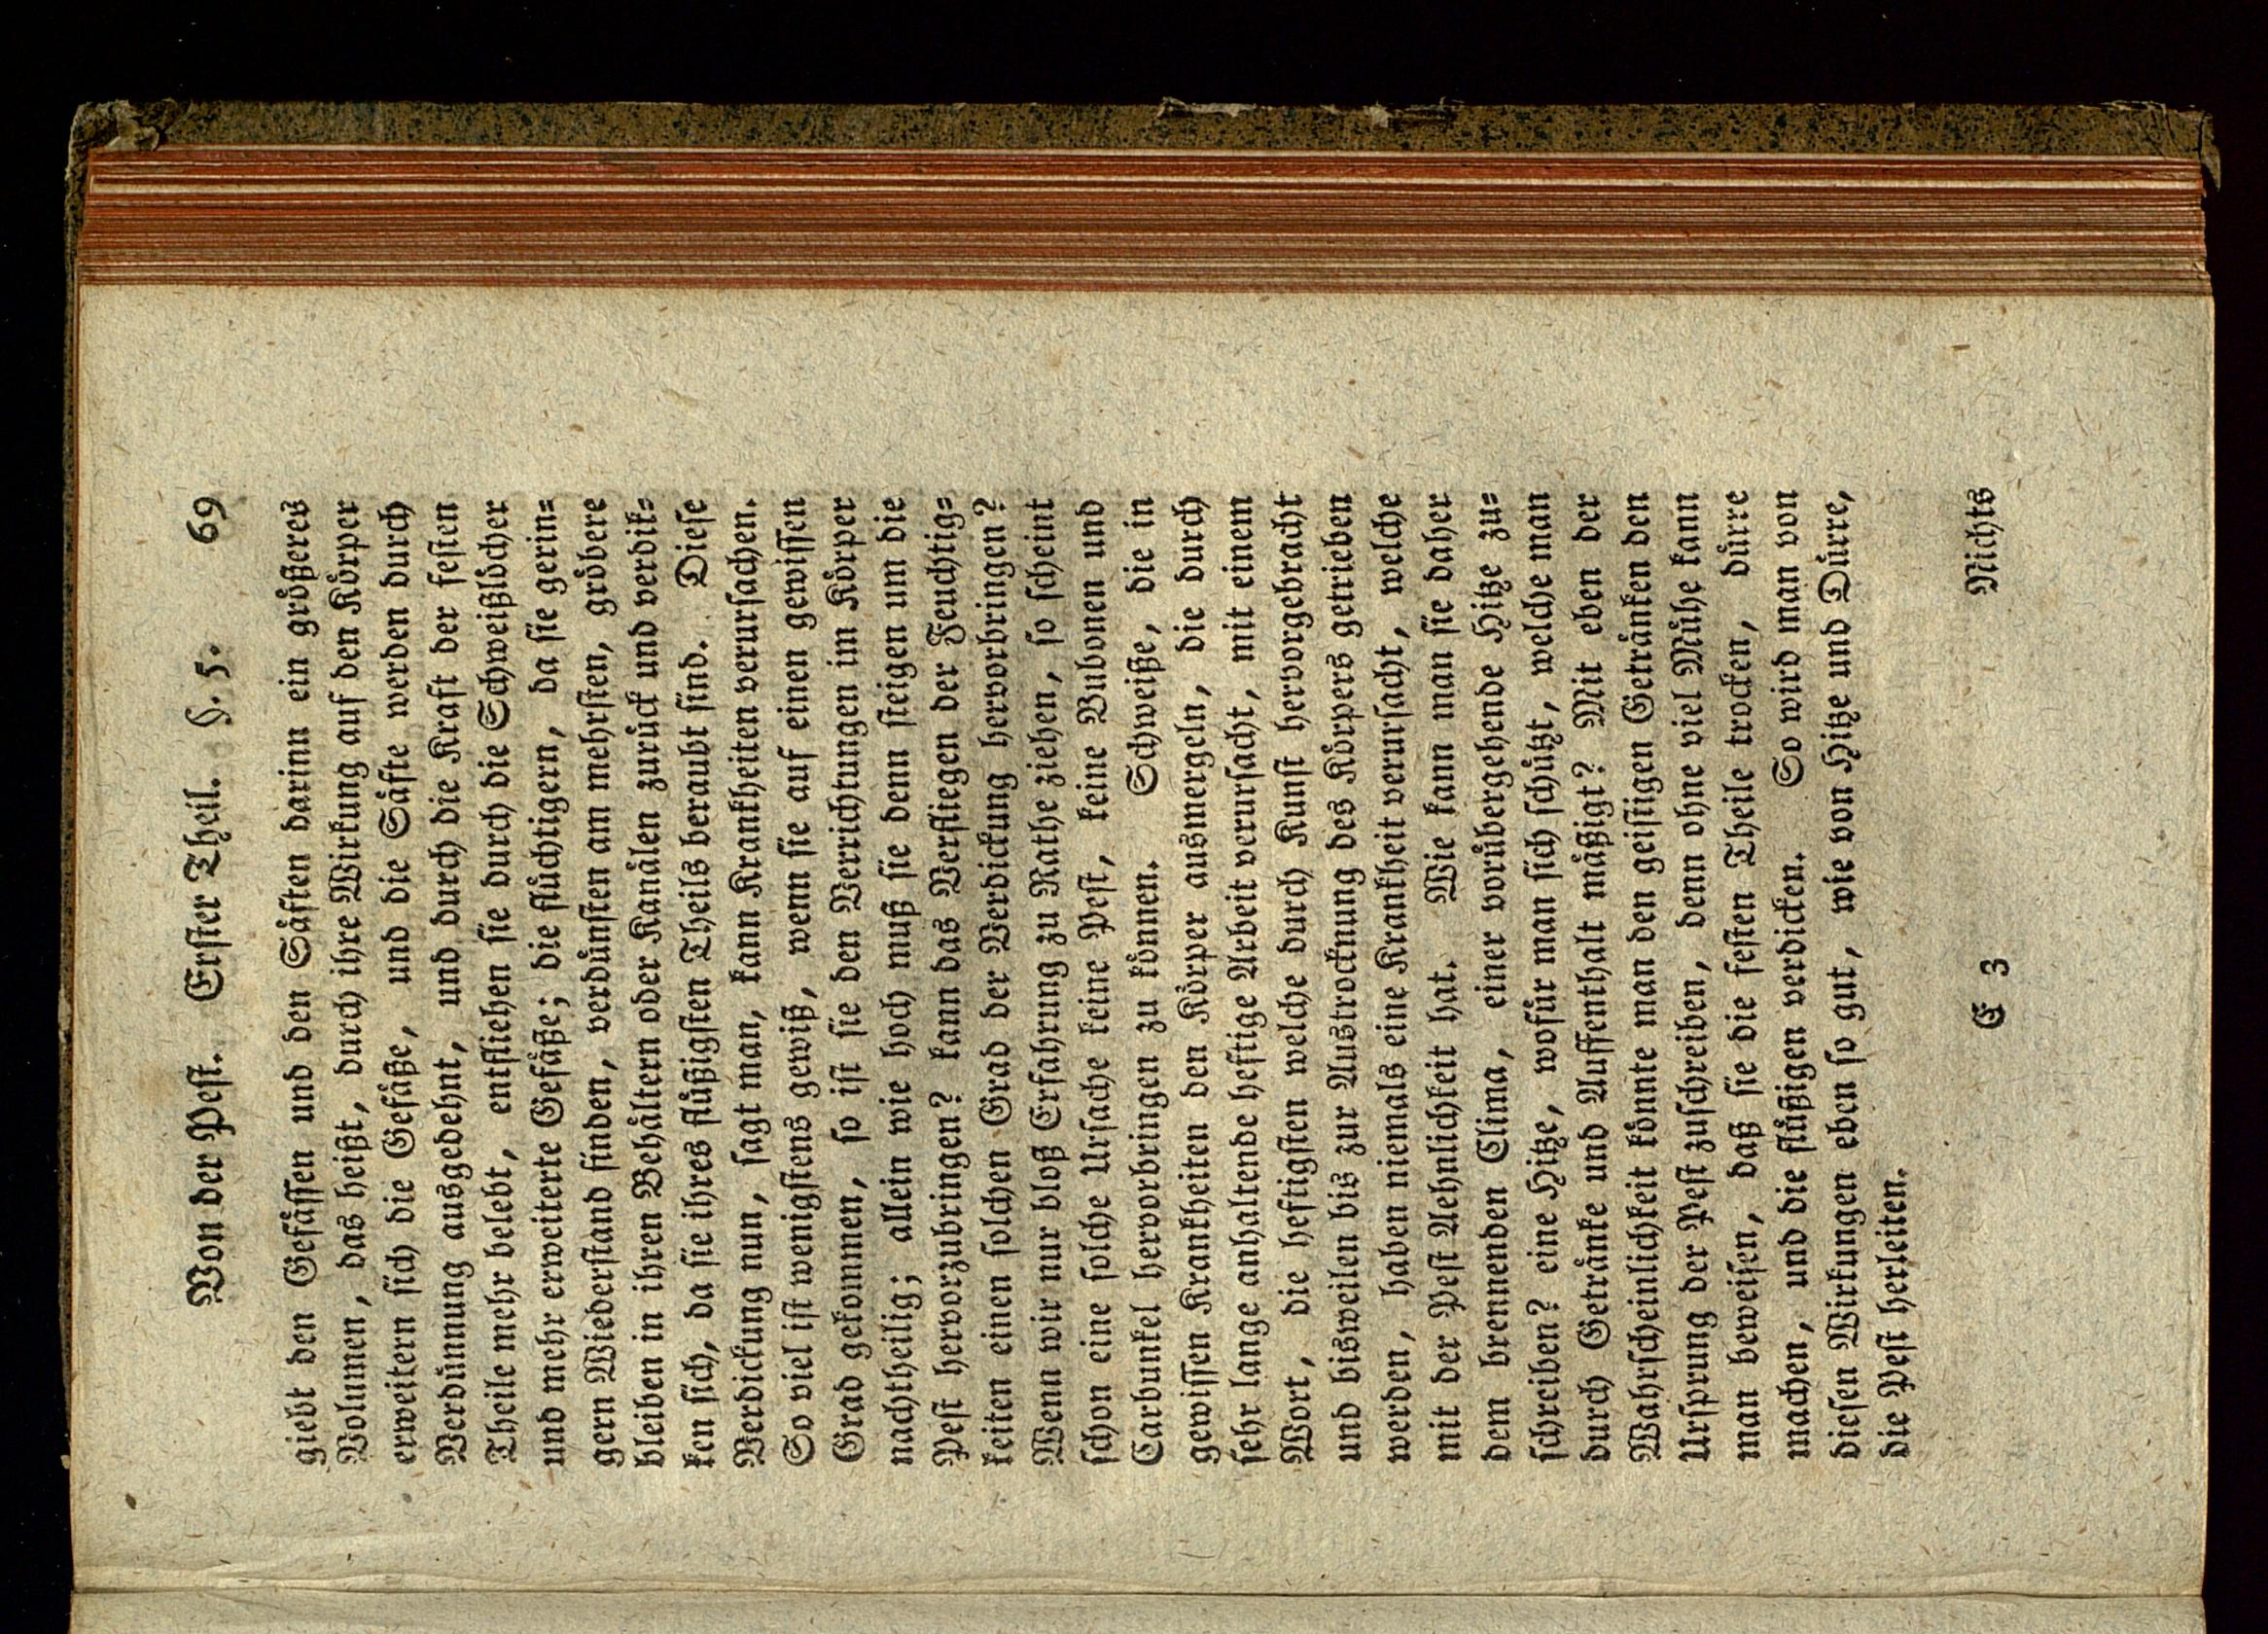 Von der Peſt. Erſter Theil. §. 5. 69
giebt den Gefäſſen und den Säften darinn ein größeres
Volumen, das heißt, durch ihre Wirkung auf den Körper
erweitern ſich die Gefäße, und die Säfte werden durch
Verdünnung ausgedehnt, und durch die Kraft der feſten
Theile mehr belebt, entfliehen ſie durch die Schweißlöcher
und mehr erweiterte Gefäße; die flüchtigern, da ſie gerin⸗
gern Wiederſtand finden, verdünſten am mehrſten, gröbere
bleiben in ihren Behältern oder Kanälen zurück und verdik⸗
ken ſich, da ſie ihres flüßigſten Theils beraubt ſind. Dieſe
Verdickung nun, ſagt man, kann Krankheiten verurſachen.
So viel iſt wenigſtens gewiß, wenn ſie auf einen gewiſſen
Grad gekommen, ſo iſt ſie den Verrichtungen im Körper
nachtheilig; allein wie hoch muß ſie denn ſteigen um die
Peſt hervorzubringen? kann das Verfliegen der Feuchtig⸗
keiten einen ſolchen Grad der Verdickung hervorbringen?
Wenn wir nur bloß Erfahrung zu Rathe ziehen, ſo ſcheint
ſchon eine ſolche Urſache keine Peſt, keine Bubonen und
Carbunkel hervorbringen zu können. Schweiße, die in
gewiſſen Krankheiten den Körper ausmergeln, die durch
ſehr lange anhaltende heftige Arbeit verurſacht, mit einem
Wort, die heftigſten welche durch Kunſt hervorgebracht
und bisweilen bis zur Austrocknung des Körpers getrieben
werden, haben niemals eine Krankheit verurſacht, welche
mit der Peſt Aehnlichkeit hat. Wie kann man ſie daher
dem brennenden Clima, einer vorübergehende Hitze zu⸗
ſchreiben? eine Hitze, wofür man ſich ſchützt, welche man
durch Getränke und Auffenthalt mäßigt? Mit eben der
Wahrſcheinlichkeit könnte man den geiſtigen Getränken den
Urſprung der Peſt zuſchreiben, denn ohne viel Mühe kann
man beweiſen, daß ſie die feſten Theile trocken, dürre
machen, und die flüßigen verdicken. So wird man von
dieſen Wirkungen eben ſo gut, wie von Hitze und Dürre,
die Peſt herleiten.
E 3 Nichts